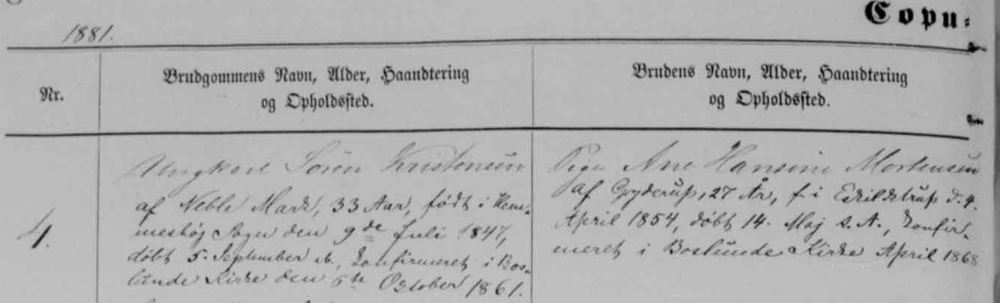 1881.
Copu-
Nr.
Brudgommens Navn, Alder, Haandtering
og Opholdssted.
Brudens Navn, Alder, Haandtering
og Opholdssted.
4.
Ungkarl Søren Kristensen
af Neble Mark, 33 Aar, født i Hem-
meshøj Sogn den 9de Juli 1847,
døbt 5. September s.A., konfirmeret i Bos-
lunde Kirke den 6te October 1861.
Pige Ane Hansine Mortensen
af Gryderup, 27 År, f. i Erildstrup d. 4.
April 1854, døbt 14. Maj s. A., konfir-
meret i Boslunde Kirke April 1868